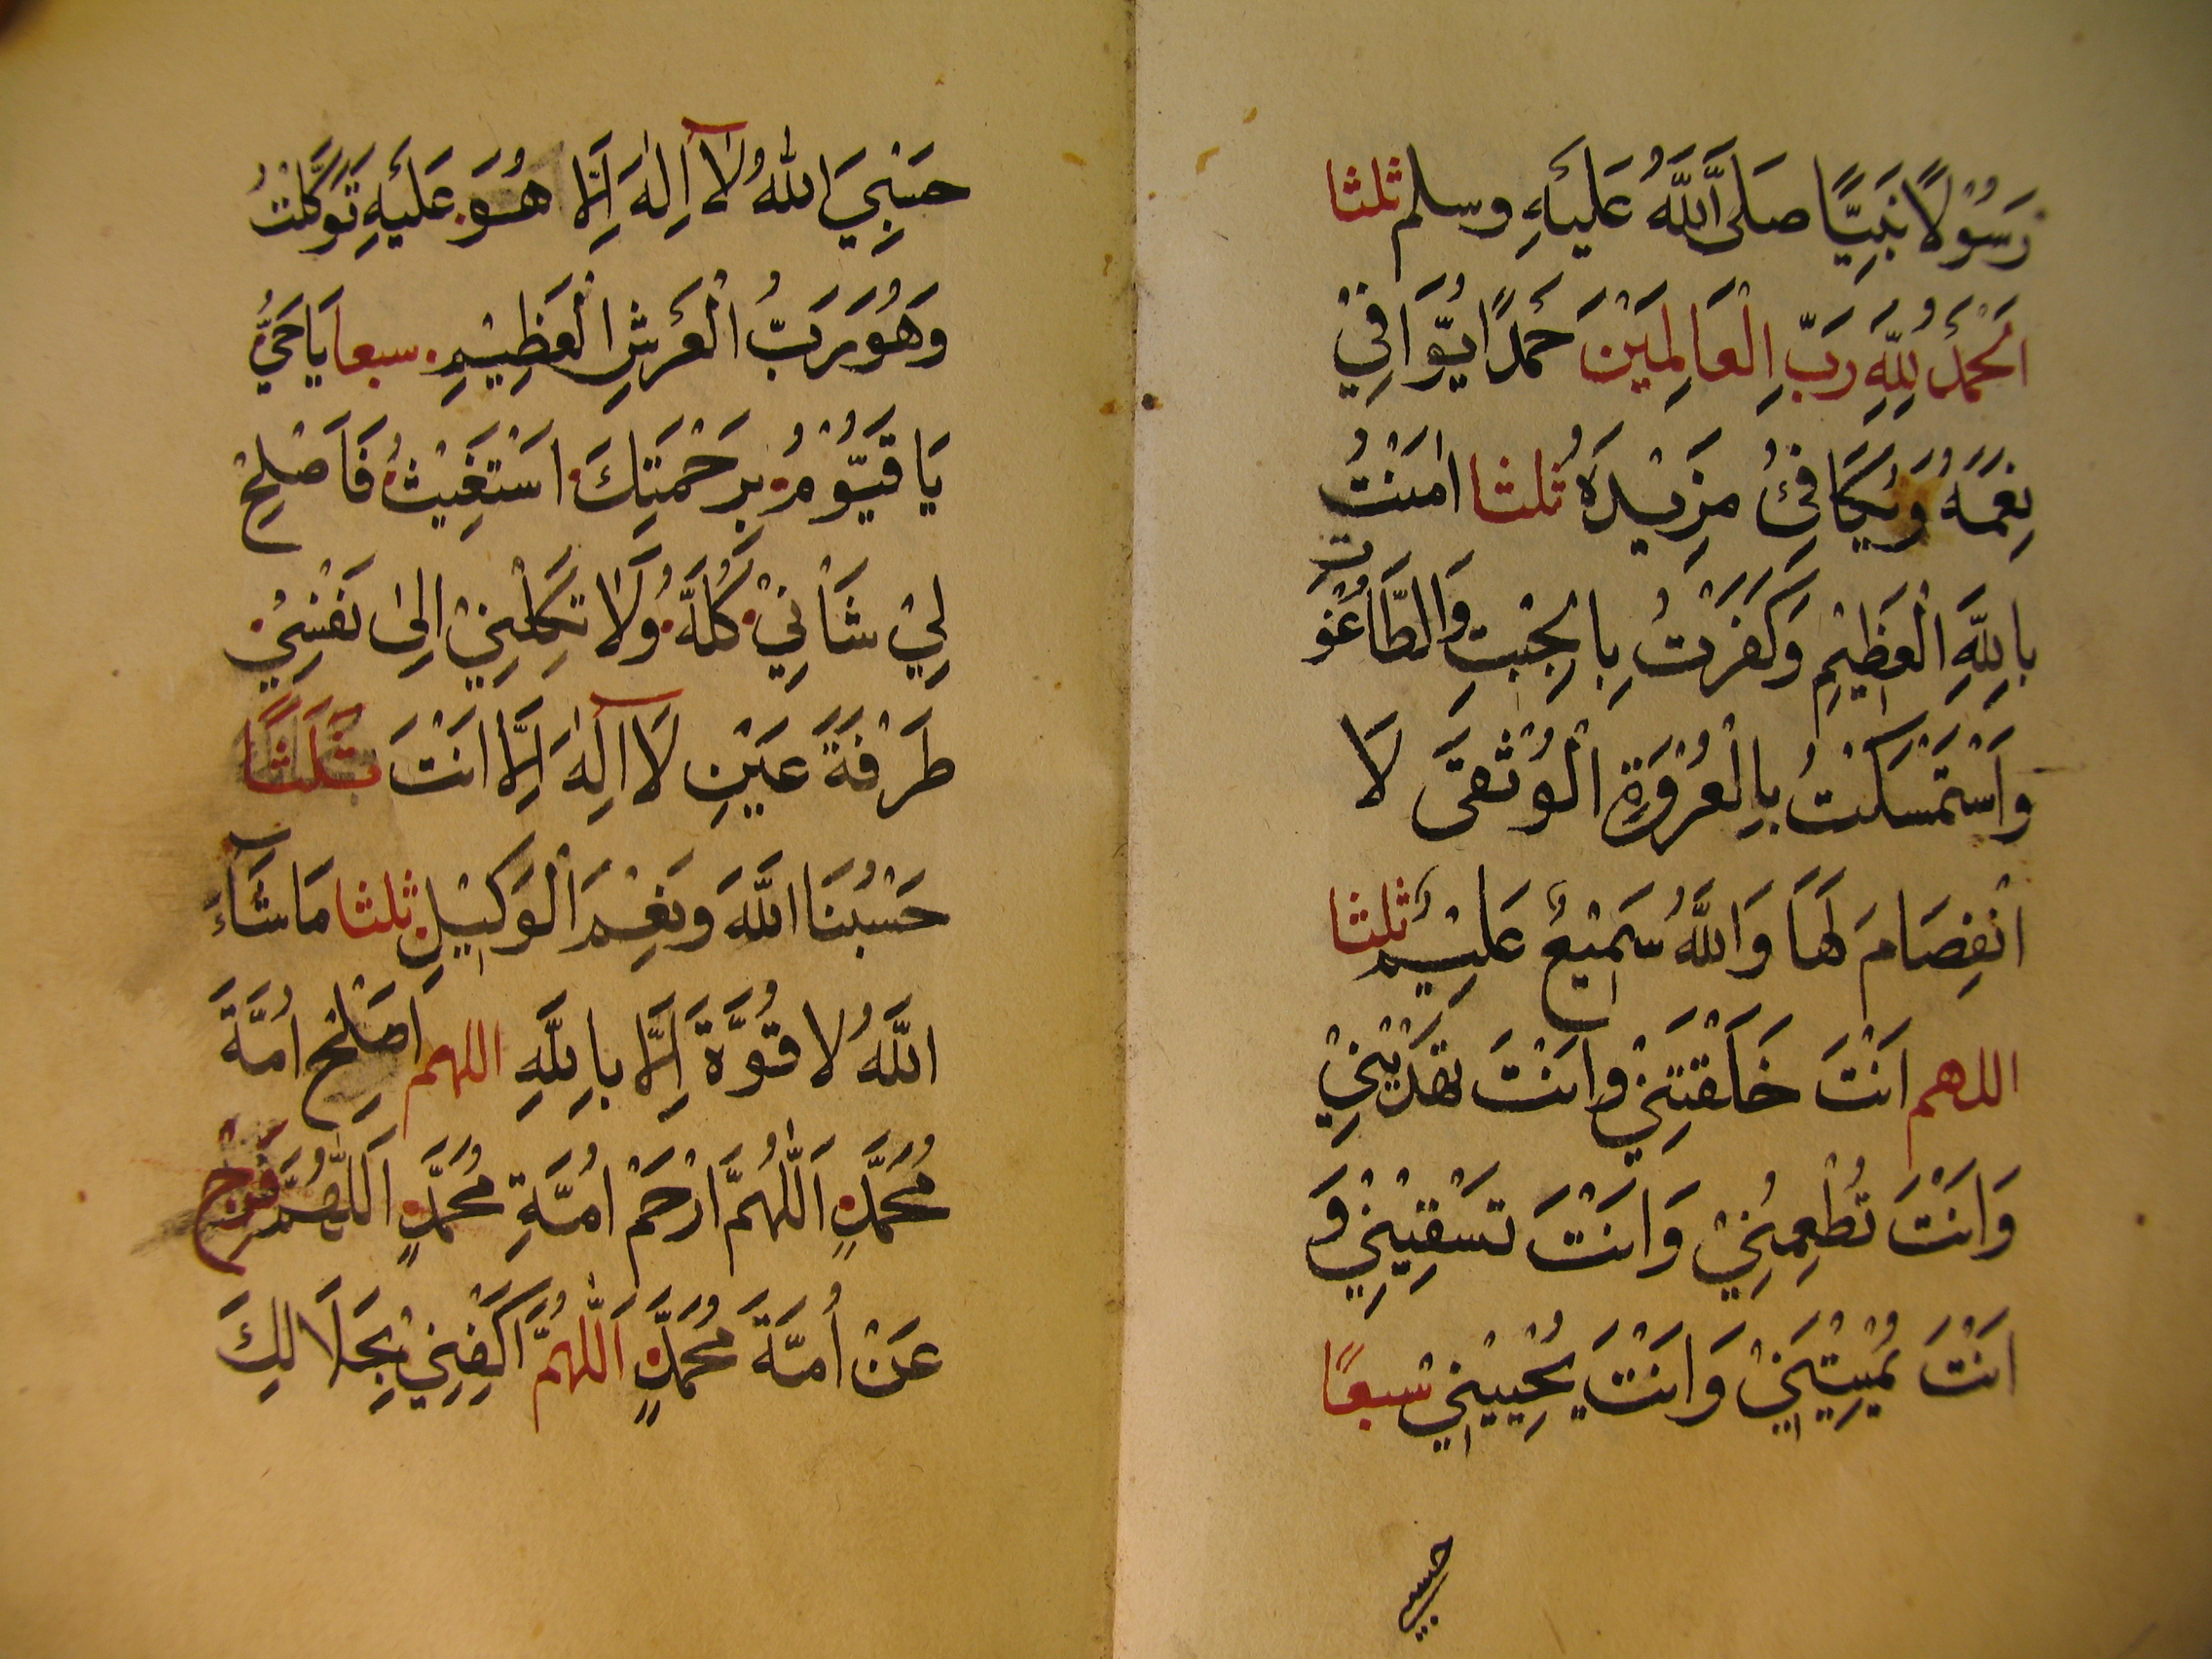 رَسُوْلًا نَبِيًّا صَلَى اللَّهُ عَلَيْهِ وسلم ثلثا
اَلحَمْدُ لِلَّهِ رَبِّ الْعَالَمِيْنَ حَمْدًا يُّوَافِيْ
نِعَمَهُ وَيُكَافِئُ مَزِيْدَهُ ثلثا اٰمَنْتُ
بِاللَّهِ الْعَظِيْمِ وَكَفَرْتُ بِالْجِبْتِ وَالطَّاغُوت
وَاسْتَمْسَكْتُ بِالْعُرْوَةِ الْوُثْقَى لَا
انْفِصَامَ لَهَا وَاللَّهُ سَمِيْعٌ عَلِيْمٌ ثلثا
اللهم اَنْتَ خَلَقْتَنِيْ وَاَنْتَ تَهْدِيْنِيْ
وَاَنْتَ تُطْعِمُنِيْ وَاَنْتَ تَسْقِيْنِيْ وَ
اَنْتَ تُمِيْتُنِيْ وَاَنْتَ يُحْيِيْنِيْ سبعًا
حسبي
حَسْبِيَ اللهُ لَآ اِلٰهَ اِلَّا هُوَ عَلَيْهِ تَوَكَّلْتُ
وَهُوَ رَبُّ الْعَرْشِ الْعَظِيْمِ سبعا يَا حَيُّ
يَا قَيُّوْمُ بِرَحْمَتِكَ اَسْتَغِيْثُ فَاَصْلِحْ
لِيْ شَأْنِيْ كُلَّهُ وَلَا تَكِلْنِيْ اِلٰى نَفْسِيْ
طَرْفَةَ عَيْنٍ لَآ اِلٰهَ اِلَّا اَنْتَ ثَلَثًا
حَسْبُنَا اللَّهَ وَنِعْمَ الْوَكِيْلِ ثلثا مَا شَآءَ
اللَّهُ لَا قُوَّةَ اِلَّا بِاللَّهِ اللهم اَصْلِحْ اُمَّةَ
مُحَمَّدٍ اَللّٰهُمَّ ارْحَمْ اُمَّةِ مُحَمَّدٍ اَللّٰهُمَّ فَرِّجْ
عَنْ اُمَّةَ مُحَمَّدٍ اَللّٰهُمَّ اَكْفِنِيْ بِجَلَالِكَ